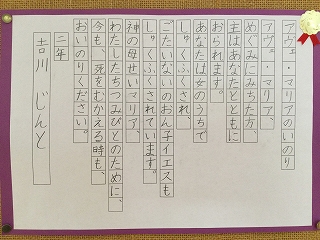 アヴェ・マリアのいのり
アヴェ・マリア、
めぐみにみちた方、
主はあなたとともに
おられます。
あなたは女のうちで
しゅくふくされ、
ごたいないのおん子イエスも
しゅくふくされています。
神の母せいマリア、
わたしたちつみびとのために、
今も、死をむかえる時も、
おいのりください。
二年
吉川 じんと